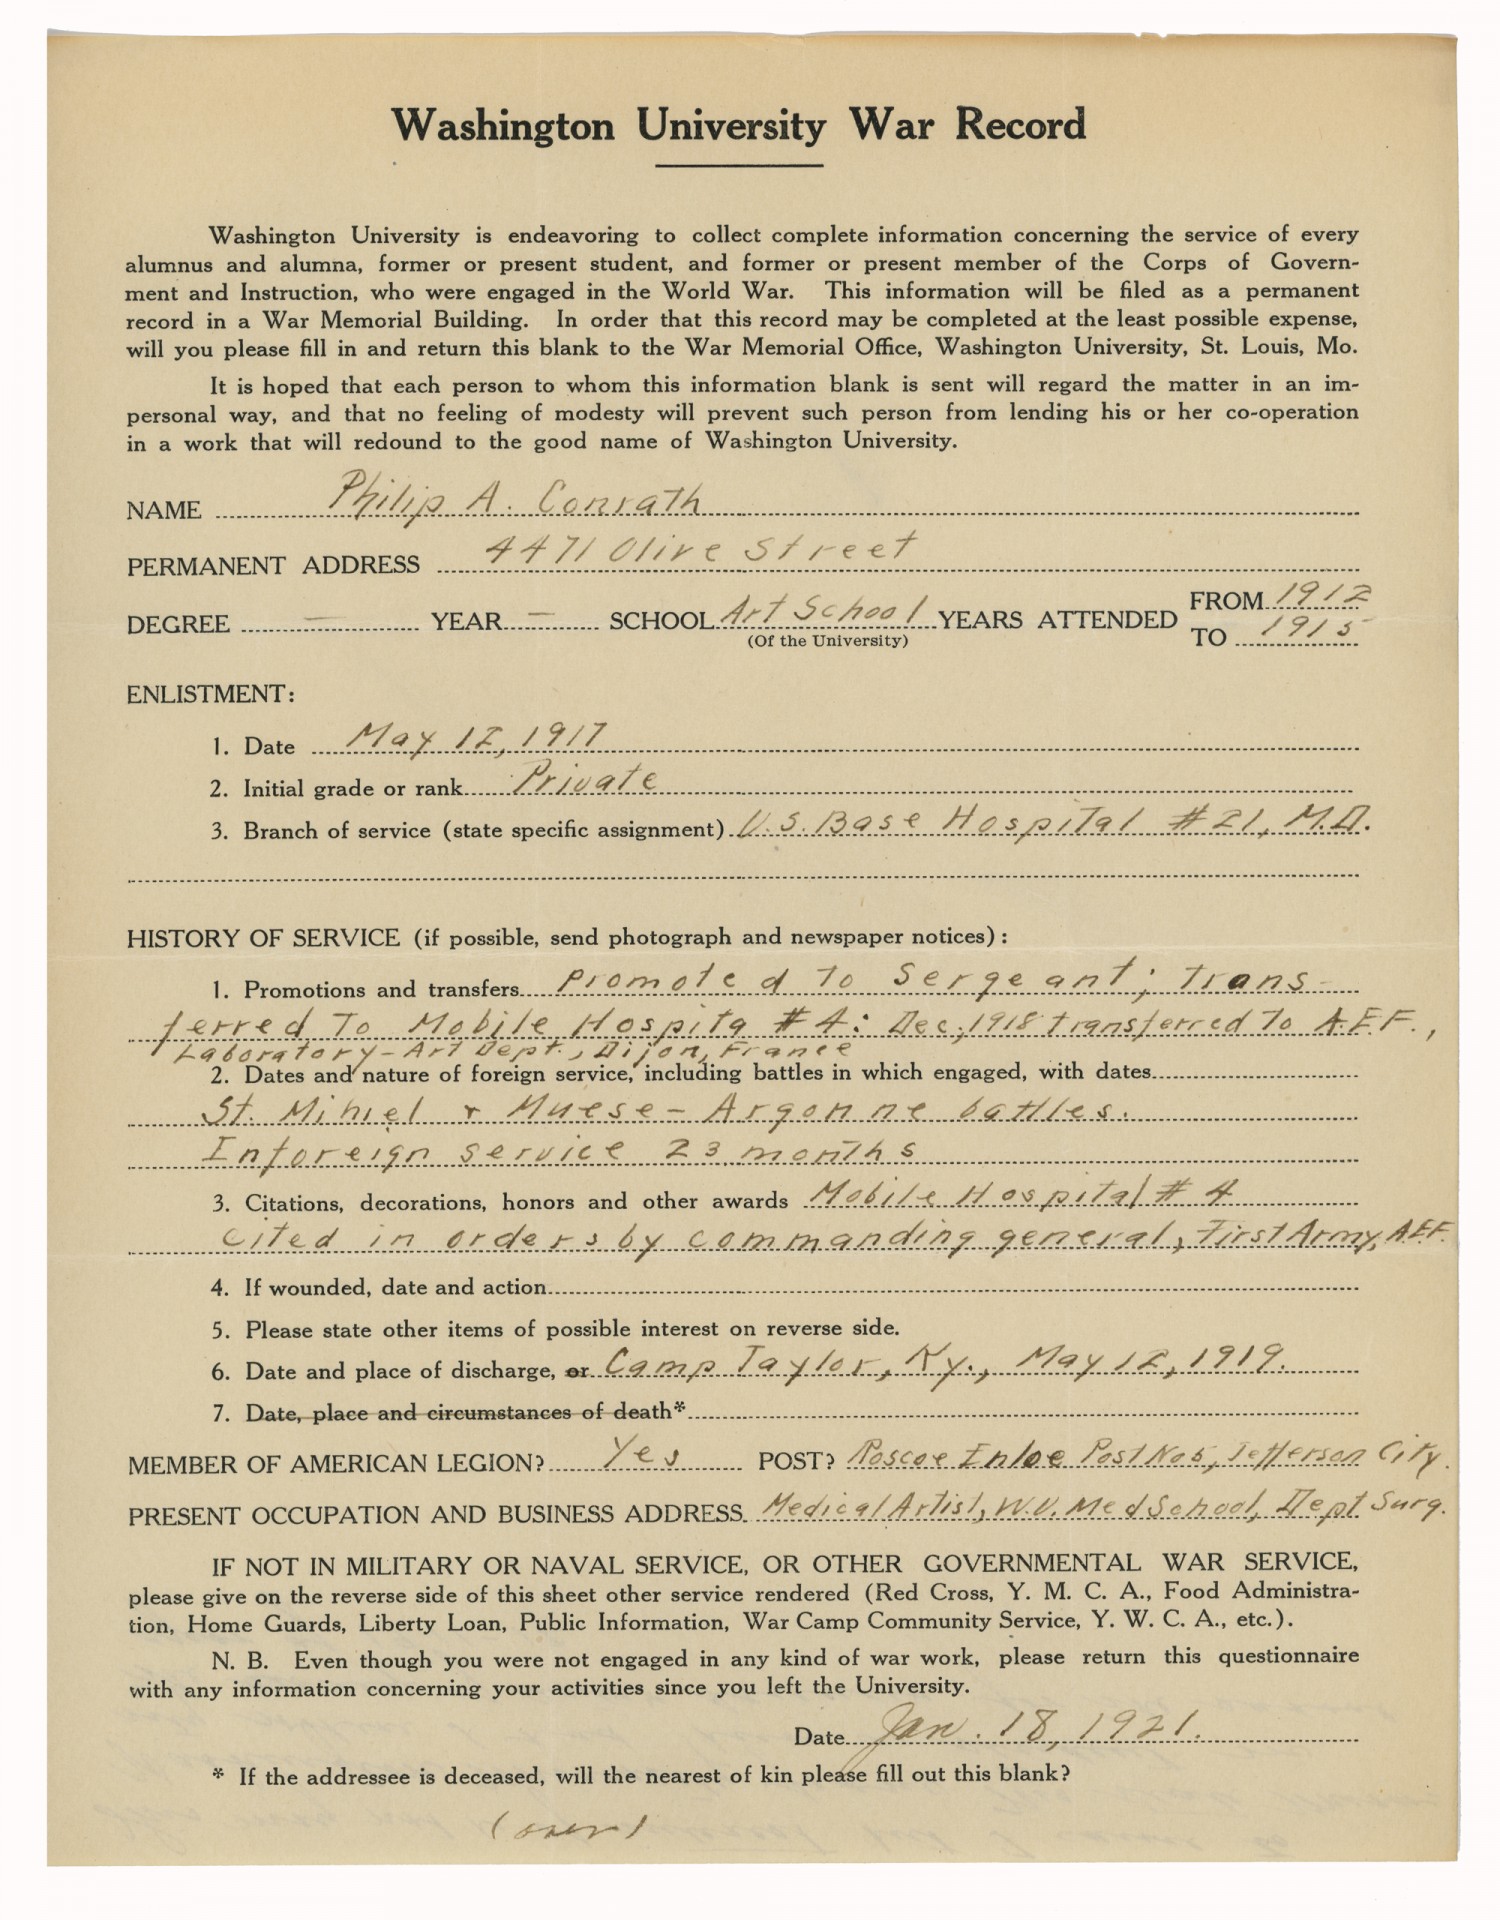 Washington University War Record
Washington University is endeavoring to collect complete information concerning the service of every
alumnus and alumna, former or present student, and former or present member of the Corps of Govern-
ment and Instruction, who were engaged in the World War. This information will be filed as a permanent
record in a War Memorial Building. In order that this record may be completed at the least possible expense,
will you please fill in and return this blank to the War Memorial Office, Washington University, St. Louis, Mo.
It is hoped that each person to whom this information blank is sent will regard the matter in an im-
personal way, and that no feeling of modesty will prevent such person from lending his or her co-operation
in a work that will redound to the good name of Washington University.
NAME Philip A. Conrath
PERMANENT ADDRESS 4471 Olive Street
DEGREE — YEAR — SCHOOL Art School YEARS ATTENDED FROM 1912
(Of the University) TO 1915
ENLISTMENT:
1. Date May 12, 1917
2. Initial grade or rank Private
3. Branch of service (state specific assignment) U.S. Base Hospital #21, M.D.
HISTORY OF SERVICE (if possible, send photograph and newspaper notices):
1. Promotions and transfers Promoted to Sergeant; trans-
ferred To Mobile Hospita #4: Dec, 1918 transferred to A.E.F.,
Laboratory - Art Dept., Dijon, France
2. Dates and nature of foreign service, including battles in which engaged, with dates
St. Mihiel + Muese - Argonne battles.
In foreign service 23 months
3. Citations, decorations, honors and other awards Mobile Hospital #4
cited in orders by commanding general, First Army, A.E.F.
4. If wounded, date and action
5. Please state other items of possible interest on reverse side.
6. Date and place of discharge, or Camp Taylor, Ky., May 12, 1919.
7. Date, place and circumstances of death*
MEMBER OF AMERICAN LEGION? Yes POST? Roscoe Enloe Post No 5, Jefferson City.
PRESENT OCCUPATION AND BUSINESS ADDRESS. Medical Artist, W.U. Med School, Dept Surg.
IF NOT IN MILITARY OR NAVAL SERVICE, OR OTHER GOVERNMENTAL WAR SERVICE,
please give on the reverse side of this sheet other service rendered (Red Cross, Y. M. C. A., Food Administra-
tion, Home Guards, Liberty Loan, Public Information, War Camp Community Service, Y. W. C. A., etc.).
N. B. Even though you were not engaged in any kind of war work, please return this questionnaire
with any information concerning your activities since you left the University.
Date Jan. 18, 1921.
* If the addressee is deceased, will the nearest of kin please fill out this blank?
(over)